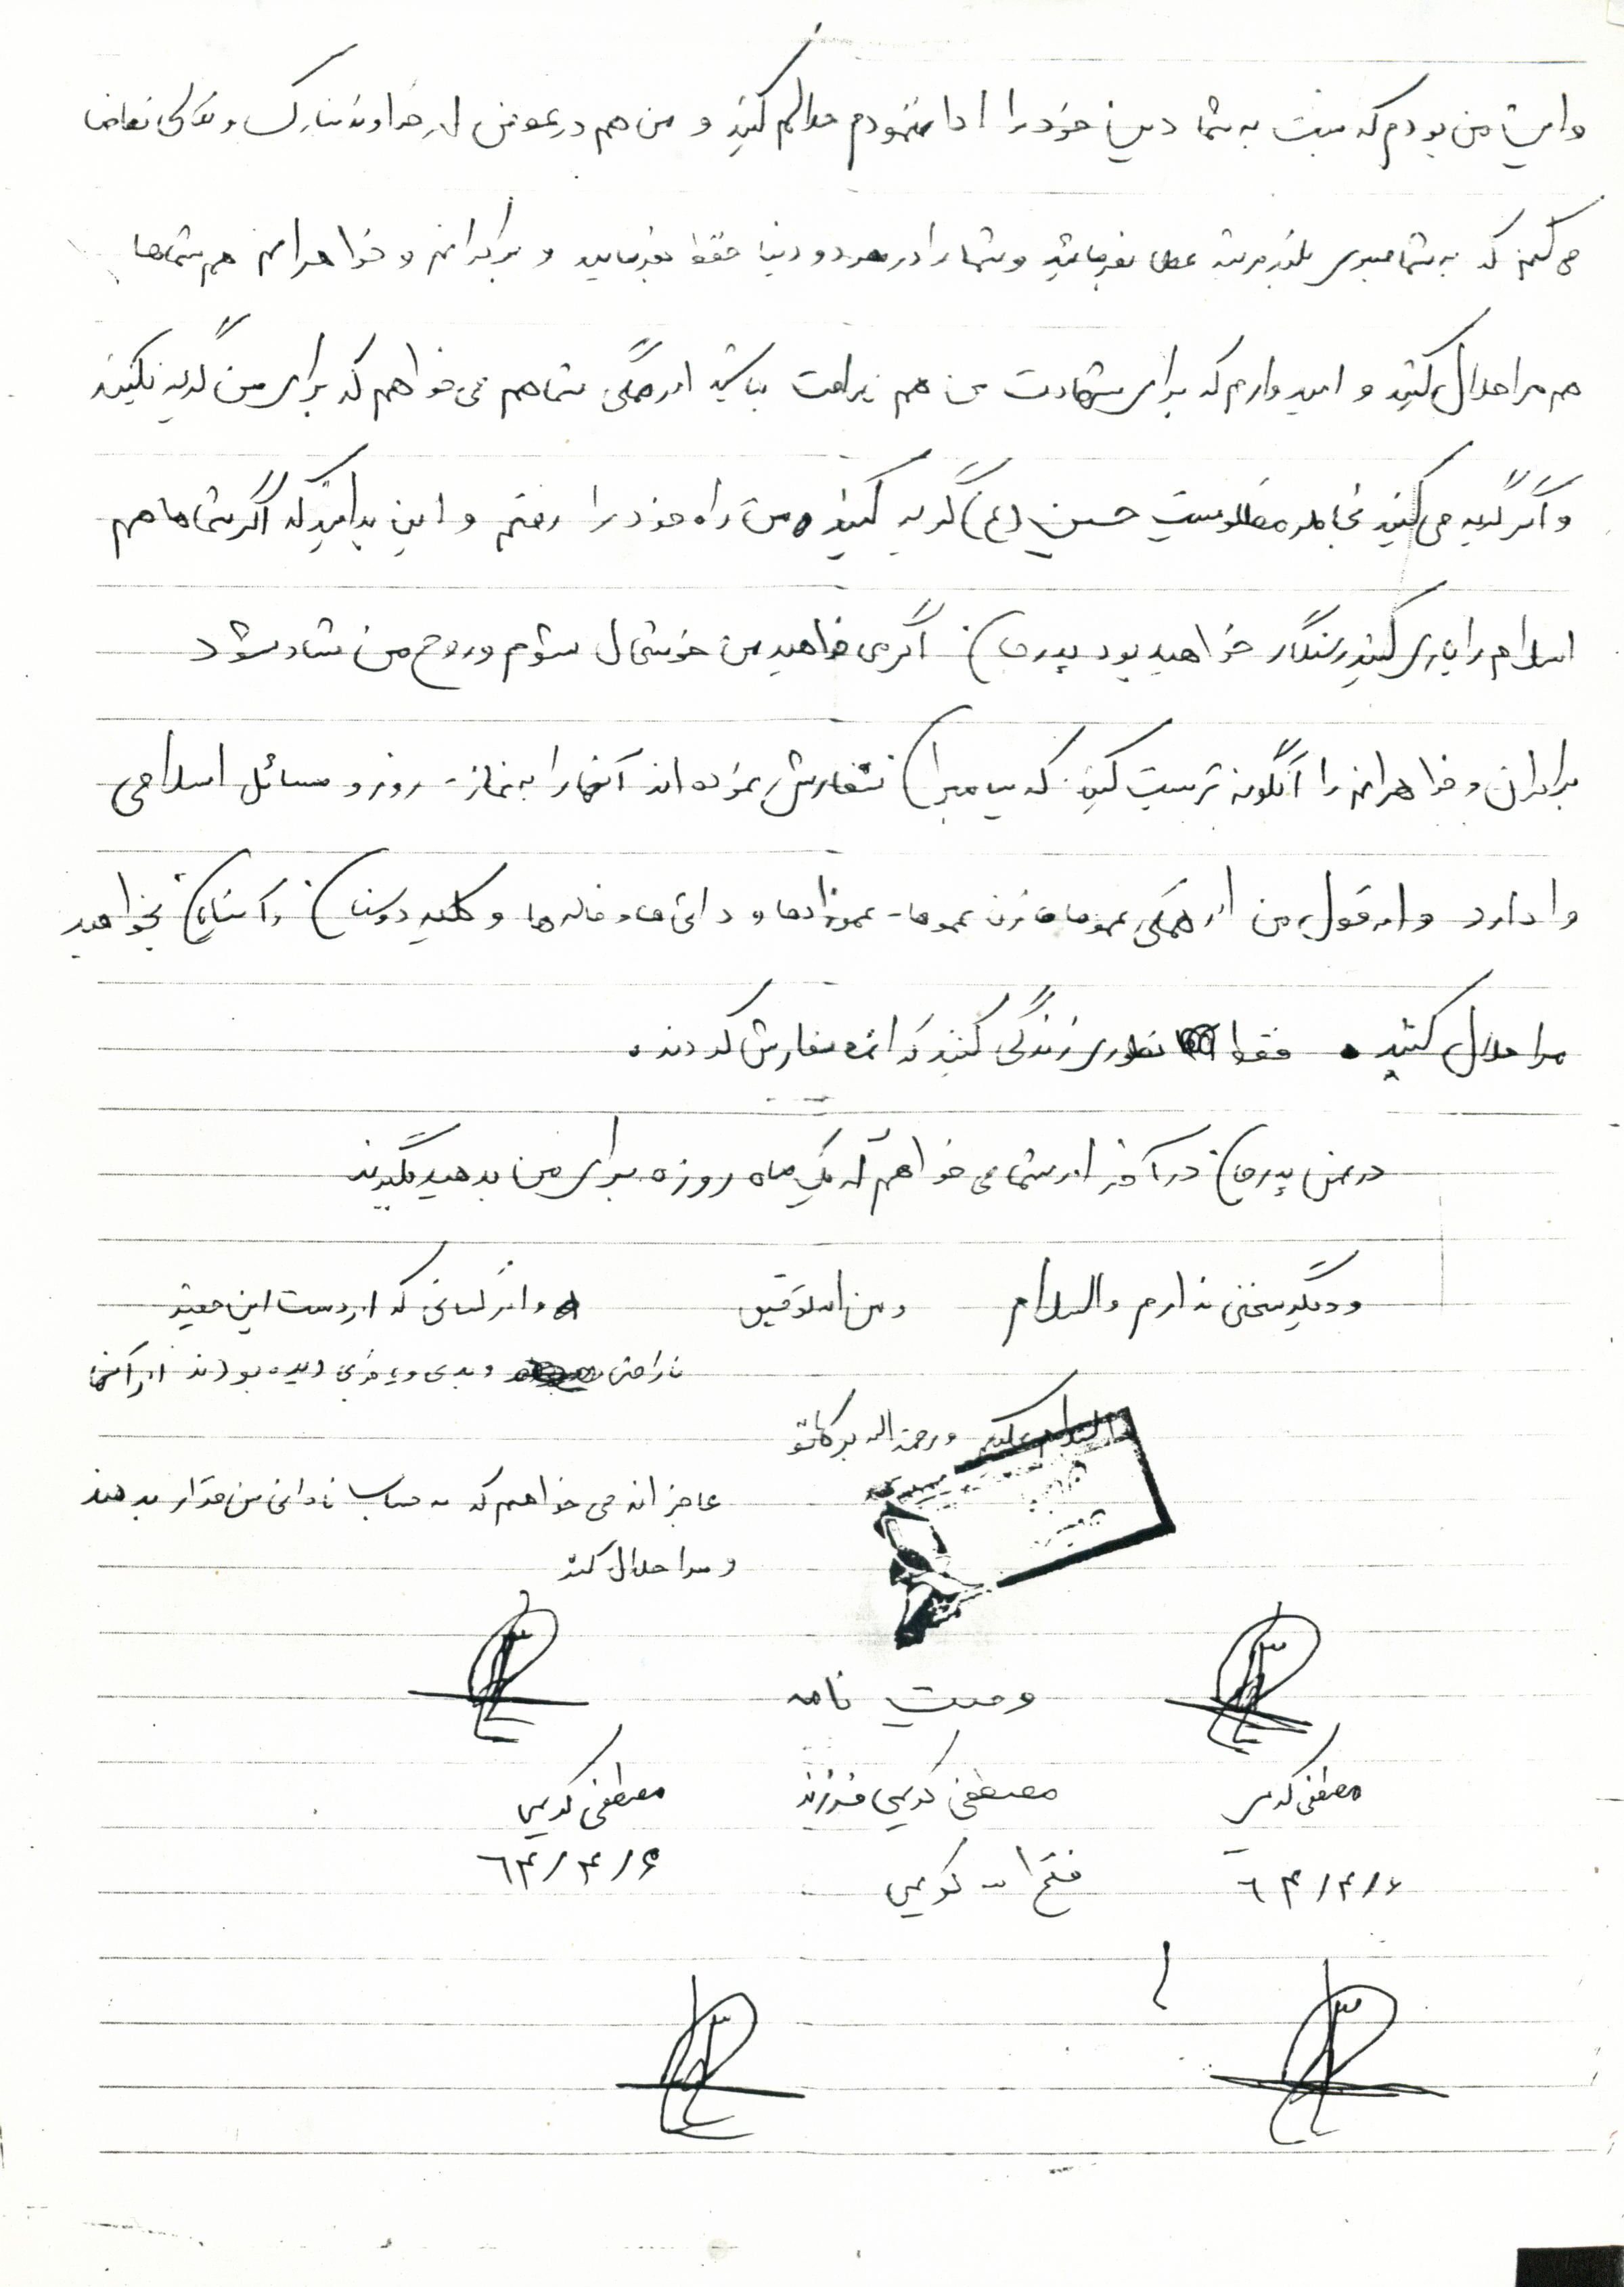 و این من بودم که نسبت به شما دین خود را ادا ننمودم حلالم کنید و من هم در عوض از خداوند تبارک و تعالی تقاضا
می کنم که به شما صبری بلند مرتبه عطا بفرماید و شما را در هر دو دنیا حفظ بفرمایید و برادرانم و خواهرانم هم شماها
هم مرا حلال کنید و امیدوارم که برای شهادت من هم ناراحت نباشید از همگی شما هم می خواهم که برای من گریه نکنید
و اگر گریه می کنید بخاطر مظلومیت حسین (ع) گریه کنید من راه خود را رفتم و این بدانید که اگر شماها هم
اسلام را یاری کنید رستگار خواهید بود پدرجان اگر می خواهید من خوشحال شوم و روح من شاد شود
برادران و خواهرانم را آنگونه تربیت کنید که پیامبران سفارش نموده اند آنها را به نماز - روزه و مسائل اسلامی
وا دارد و از قول من از همگی عموها و زن عموها - عموزادها و دائی ها و خاله ها و کلیه دوستان و آشنایان بخواهید
مرا حلال کنید . فقط طوری زندگی کنید که ائمه سفارش کردند .
در ضمن پدرجان در آخر از شما می خواهم که یک ماه روزه برای من بدهید بگیرند
و دیگر سخنی ندارم والسلام و من الله توفیق
و از کسانی که از دست این حقیر
ناراحتی و بدی و دیده بودند از آنها
والسلام علیکم و رحمة اله برکاتو
عاجزانه می خواهم که به حساب نادانی من قرار بدهند
و مرا حلال کنند
وصیت نامه
مصطفی کریمی مصطفی کریمی فرزند مصطفی کریمی
۶۴/۴/۶ فتح اله کریمی ۶۴/۴/۶